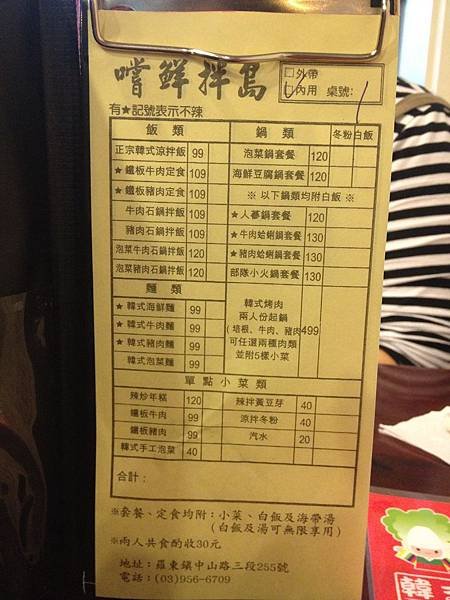 嚐鮮拌島
□外帶
□內用 桌號:
有★記號表示不辣
飯類
正宗韓式涼拌飯 99
★鐵板牛肉定食 109
★鐵板豬肉定食 109
牛肉石鍋拌飯 109
豬肉石鍋拌飯 109
泡菜牛肉石鍋拌飯 120
泡菜豬肉石鍋拌飯 120
麵類
★韓式海鮮麵 99
★韓式牛肉麵 99
★韓式豬肉麵 99
韓式泡菜麵 99
鍋類 冬粉 白飯
泡菜鍋套餐 120
海鮮豆腐鍋套餐 120
※ 以下鍋類均附白飯 ※
★人蔘鍋套餐 120
★牛肉蛤蜊鍋套餐 130
★豬肉蛤蜊鍋套餐 130
部隊小火鍋套餐 130
韓式烤肉
兩人份起鍋
(培根、牛肉、豬肉 499
可任選兩種肉類
並附5樣小菜
單點小菜類
辣炒年糕 120 辣拌黃豆芽 40
鐵板牛肉 99 涼拌冬粉 40
鐵板豬肉 99 汽水 20
韓式手工泡菜 40
合計:
※套餐、定食均附:小菜、白飯及海帶湯
(白飯及湯可無限享用)
※兩人共食酌收30元
地址:羅東鎮中山路三段255號
電話:(03)956-6709
韓